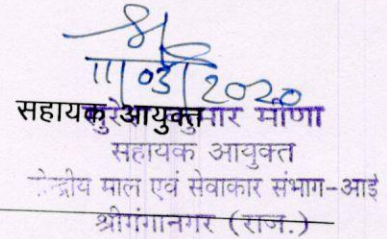 11/03/2020
सहायक आयुक्त
कुमार मीणा
सहायक आयुक्त
केन्द्रीय माल एवं सेवाकर संभाग-आई
श्रीगंगानगर (राज.)